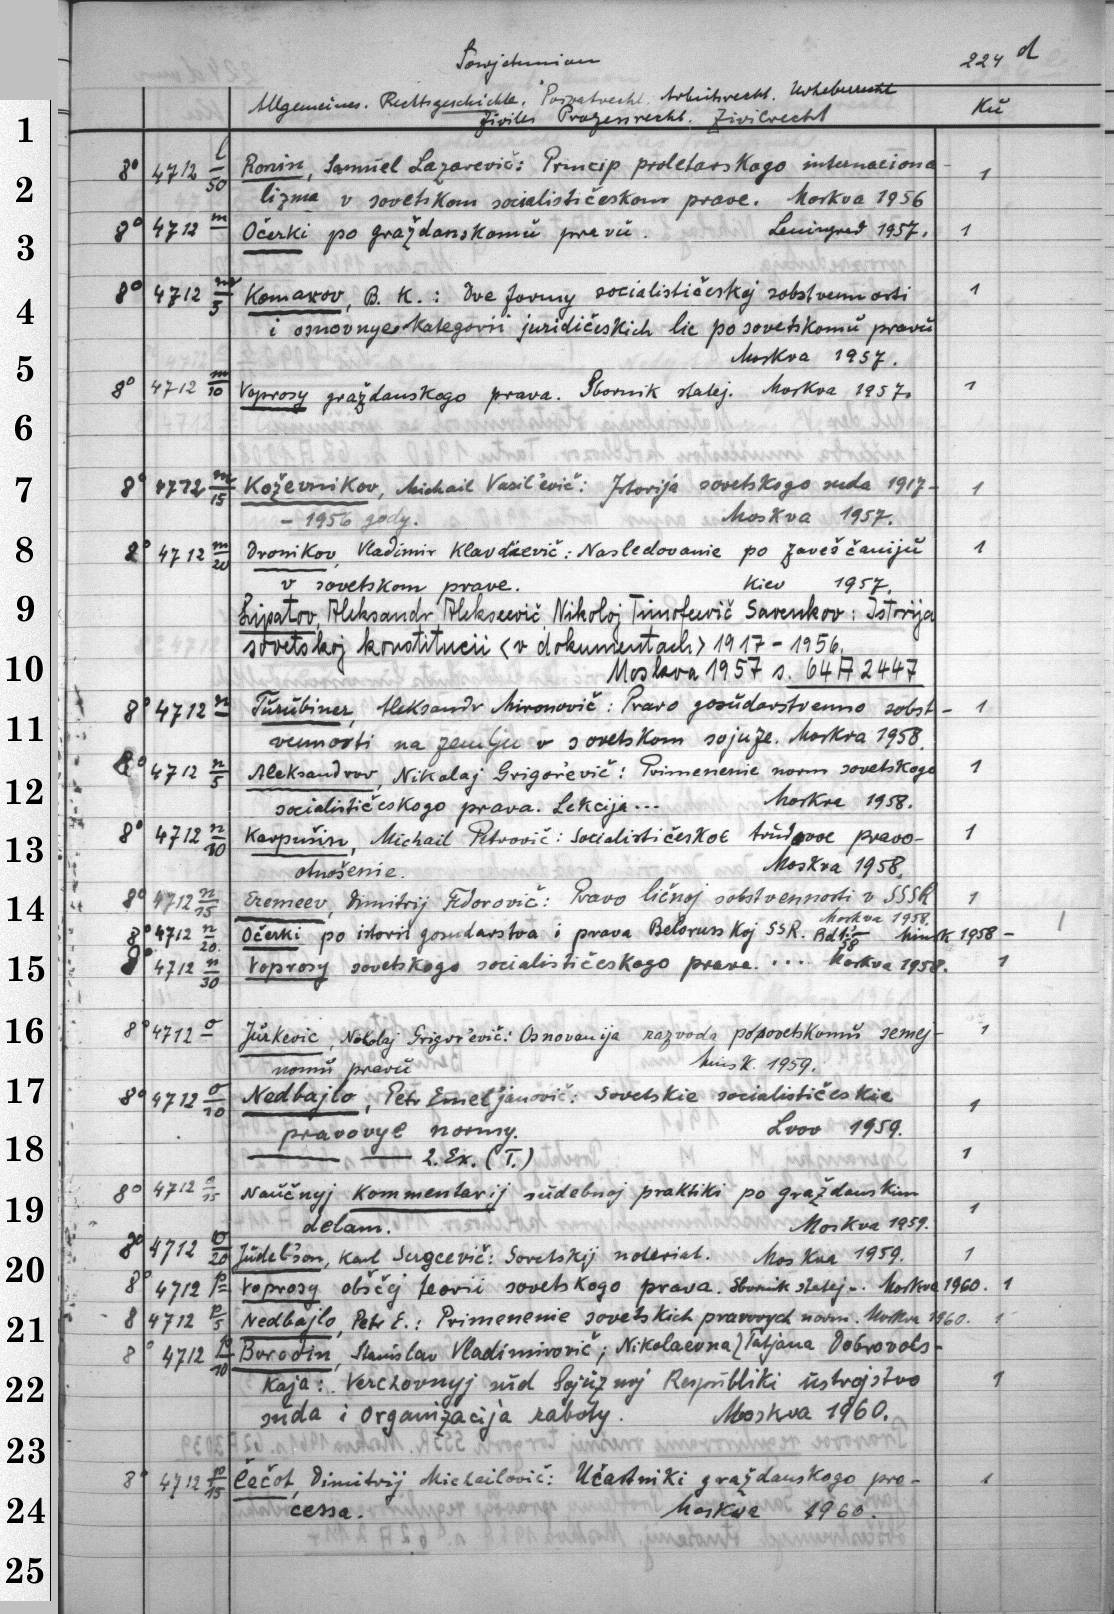 Sowjetunion 224 d
Allgemeines. Rechtsgeschichte. Privatrecht. Arbeitsrecht. Urheberrecht Kü
Ziviles Prozessrecht. Zivilrecht
1
8° 4712 l/50 Ronin, Samuel Lazarevič: Princip proletarskogo internaciona- 1
2
lizma v sovetskom socialističeskom prave. Moskva 1956
8° 4712 m Očerki po graždanskomŭ pravŭ. Leningrad 1957. 1
3
8° 4712 m/5 Komarov, B. K.: Dve formy socialističeskoj sobstvennosti 1
4
i osnovnye kategorii juridičeskich lic po sovetskomŭ pravŭ
Moskva 1957.
5
8° 4712 m/10 Voprosy graždanskogo prava. Sbornik statej. Moskva 1957. 1
6
7
8° 4712 m/15 Koževnikov, Michail Vasil'evič: Istorija sovetskogo suda 1917- 1
- 1956 gody. Moskva 1957.
8
8° 4712 m/20 Dronikov, Vladimir Klavdievič: Nasledovanie po zaveščaniju 1
v sovetskom prave. Kiev 1957.
9
Lipatov, Aleksandr Alekseevič, Nikolaj Timofeevič Savenkov: Istorija
sovetskoj konstitucii <v dokumentach> 1917-1956.
10
Moskva 1957 s. 64 A 2447
8° 4712 n Turubiner, Aleksandr Mironovič: Pravo gosŭdarstvenno sobst- 1
11
vennosti na zemlju v sovetskom sojuze. Moskva 1958.
8° 4712 n/5 Aleksandrov, Nikolaj Grigor'evič: Primenenie norm sovetskogo 1
12
socialističeskogo prava. Lekcija... Moskva 1958.
8° 4712 n/10 Karpušin, Michail Petrovič: Socialističeskoe trŭdovoe pravo- 1
13
otnošenie. Moskva 1958.
8° 4712 n/15 Eremeev, Dimitrij Fedorovič: Pravo ličnoj sobstvennosti v SSSR 1
14
Moskva 1958.
8° 4712 n/20 Očerki po istorii gosudarstva i prava Belorusskoj SSR. Bd 1:58 Minsk 1958 - 1
15
8° 4712 n/30 Voprosy sovetskogo socialističeskogo prava. .... Moskva 1958. 1
16
8° 4712 o Jŭrkevic, Nikolaj Grigor'evič: Osnovanija razvoda po sovetskomŭ semej- 1
nomŭ pravŭ Minsk. 1959.
17
8° 4712 o/10 Nedbajlo, Petr Emel'janovič: Sovetskie socialističeskie 1
pravovye normy. Lvov 1959.
18
—— —— 2. Ex. (T.) 1
8° 4712 o/15 Naŭčnyj kommentarij sŭdebnoj praktiki po graždanskim 1
19
delam. Moskva 1959.
8° 4712 o/20 Jŭdel'son, Karl Sergeevič: Sovetskij notariat. Moskva 1959. 1
20
8° 4712 p Voprosy obščej teorii sovetskogo prava. Sbornik statej... Moskva 1960. 1
21
8 4712 p/5 Nedbajlo, Petr E.: Primenenie sovetskich pravovych norm. Moskva 1960. 1
8° 4712 p/10 Borodin, Stanislav Vladimirovič; Nikolaevna Tatjana Dobrovols-
22
kaja: Verchovnyj sŭd Sojŭznoj Respŭbliki ŭstrojstvo 1
sŭda i organizacija raboty. Moskva 1960.
23
8° 4712 p/15 Čečot, Dimitrij Michailovič: Učastniki graždanskogo pro- 1
24
cessa. Moskva 1960.
25